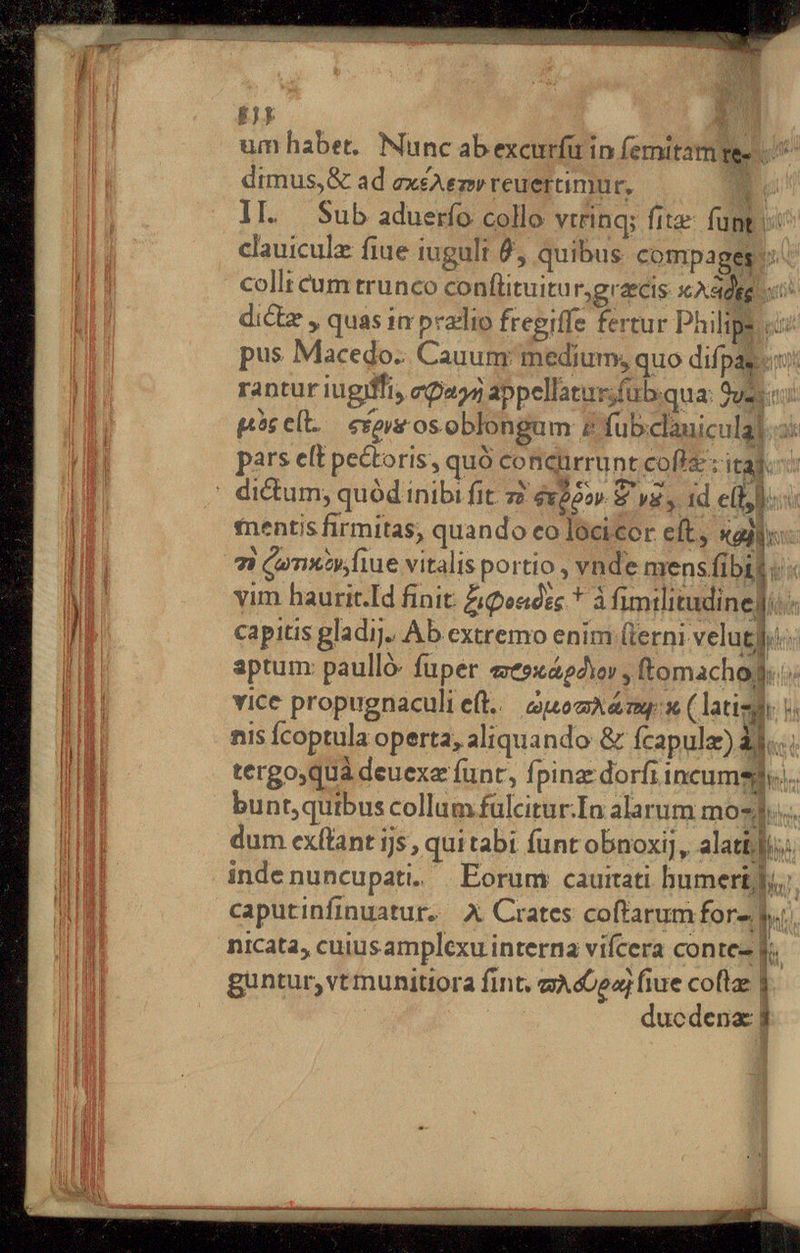 um habet. Nunc ab excurſu in ſemitam re-
dimus, & ad σκέλετον reuertimur.
II. Sub aduerſo collo vtrinq; ſitæ ſunt
clauiculæ ſiue iuguli θ, quibus compages
colli cum trunco conſtituitur, græcis κλᾶδες
dictæ, quas in prælio fregiſſe fertur Philip-
pus Macedo. Cauum medium, quo diſpa-
rantur iugiſſi, σφαγὴ appellatur, ſub qua θυ-
μός eſt. στέρνον os oblongum ε ſub clauicula
pars eſt pectoris, quò concurrunt coſtæ: ita
dictum, quòd inibi ſit τὸ στέῤῥον id eſt,
mentis firmitas, quando eo loci cor eſt, καὶ
τὸ ζωτικὸν, ſiue vitalis portio, vnde mens ſibi
vim haurit. Id finit ξιφοειδὲς * à ſimilitudine
capitis gladij. Ab extremo enim ſterni velut
aptum paullò ſuper ſtomacho
vice propugnaculi eſt. ὠμοπλάται κ (lati-
nis ſcoptula operta, aliquando & ſcapulæ) à
tergo, quà deuexæ ſunt, ſpinæ dorſi incum-
bunt, quibus collum fulcitur. In alarum mo-
dum exſtant ijs, qui tabi ſunt obnoxij, alati
inde nuncupati. Eorum cauitati humeri
caput inſinuatur. λ Crates coſtarum for-
nicata, cuius amplexu interna viſcera conte-
guntur, vt munitiora ſint. πλευραὶ ſiue coſtæ
duodenæ